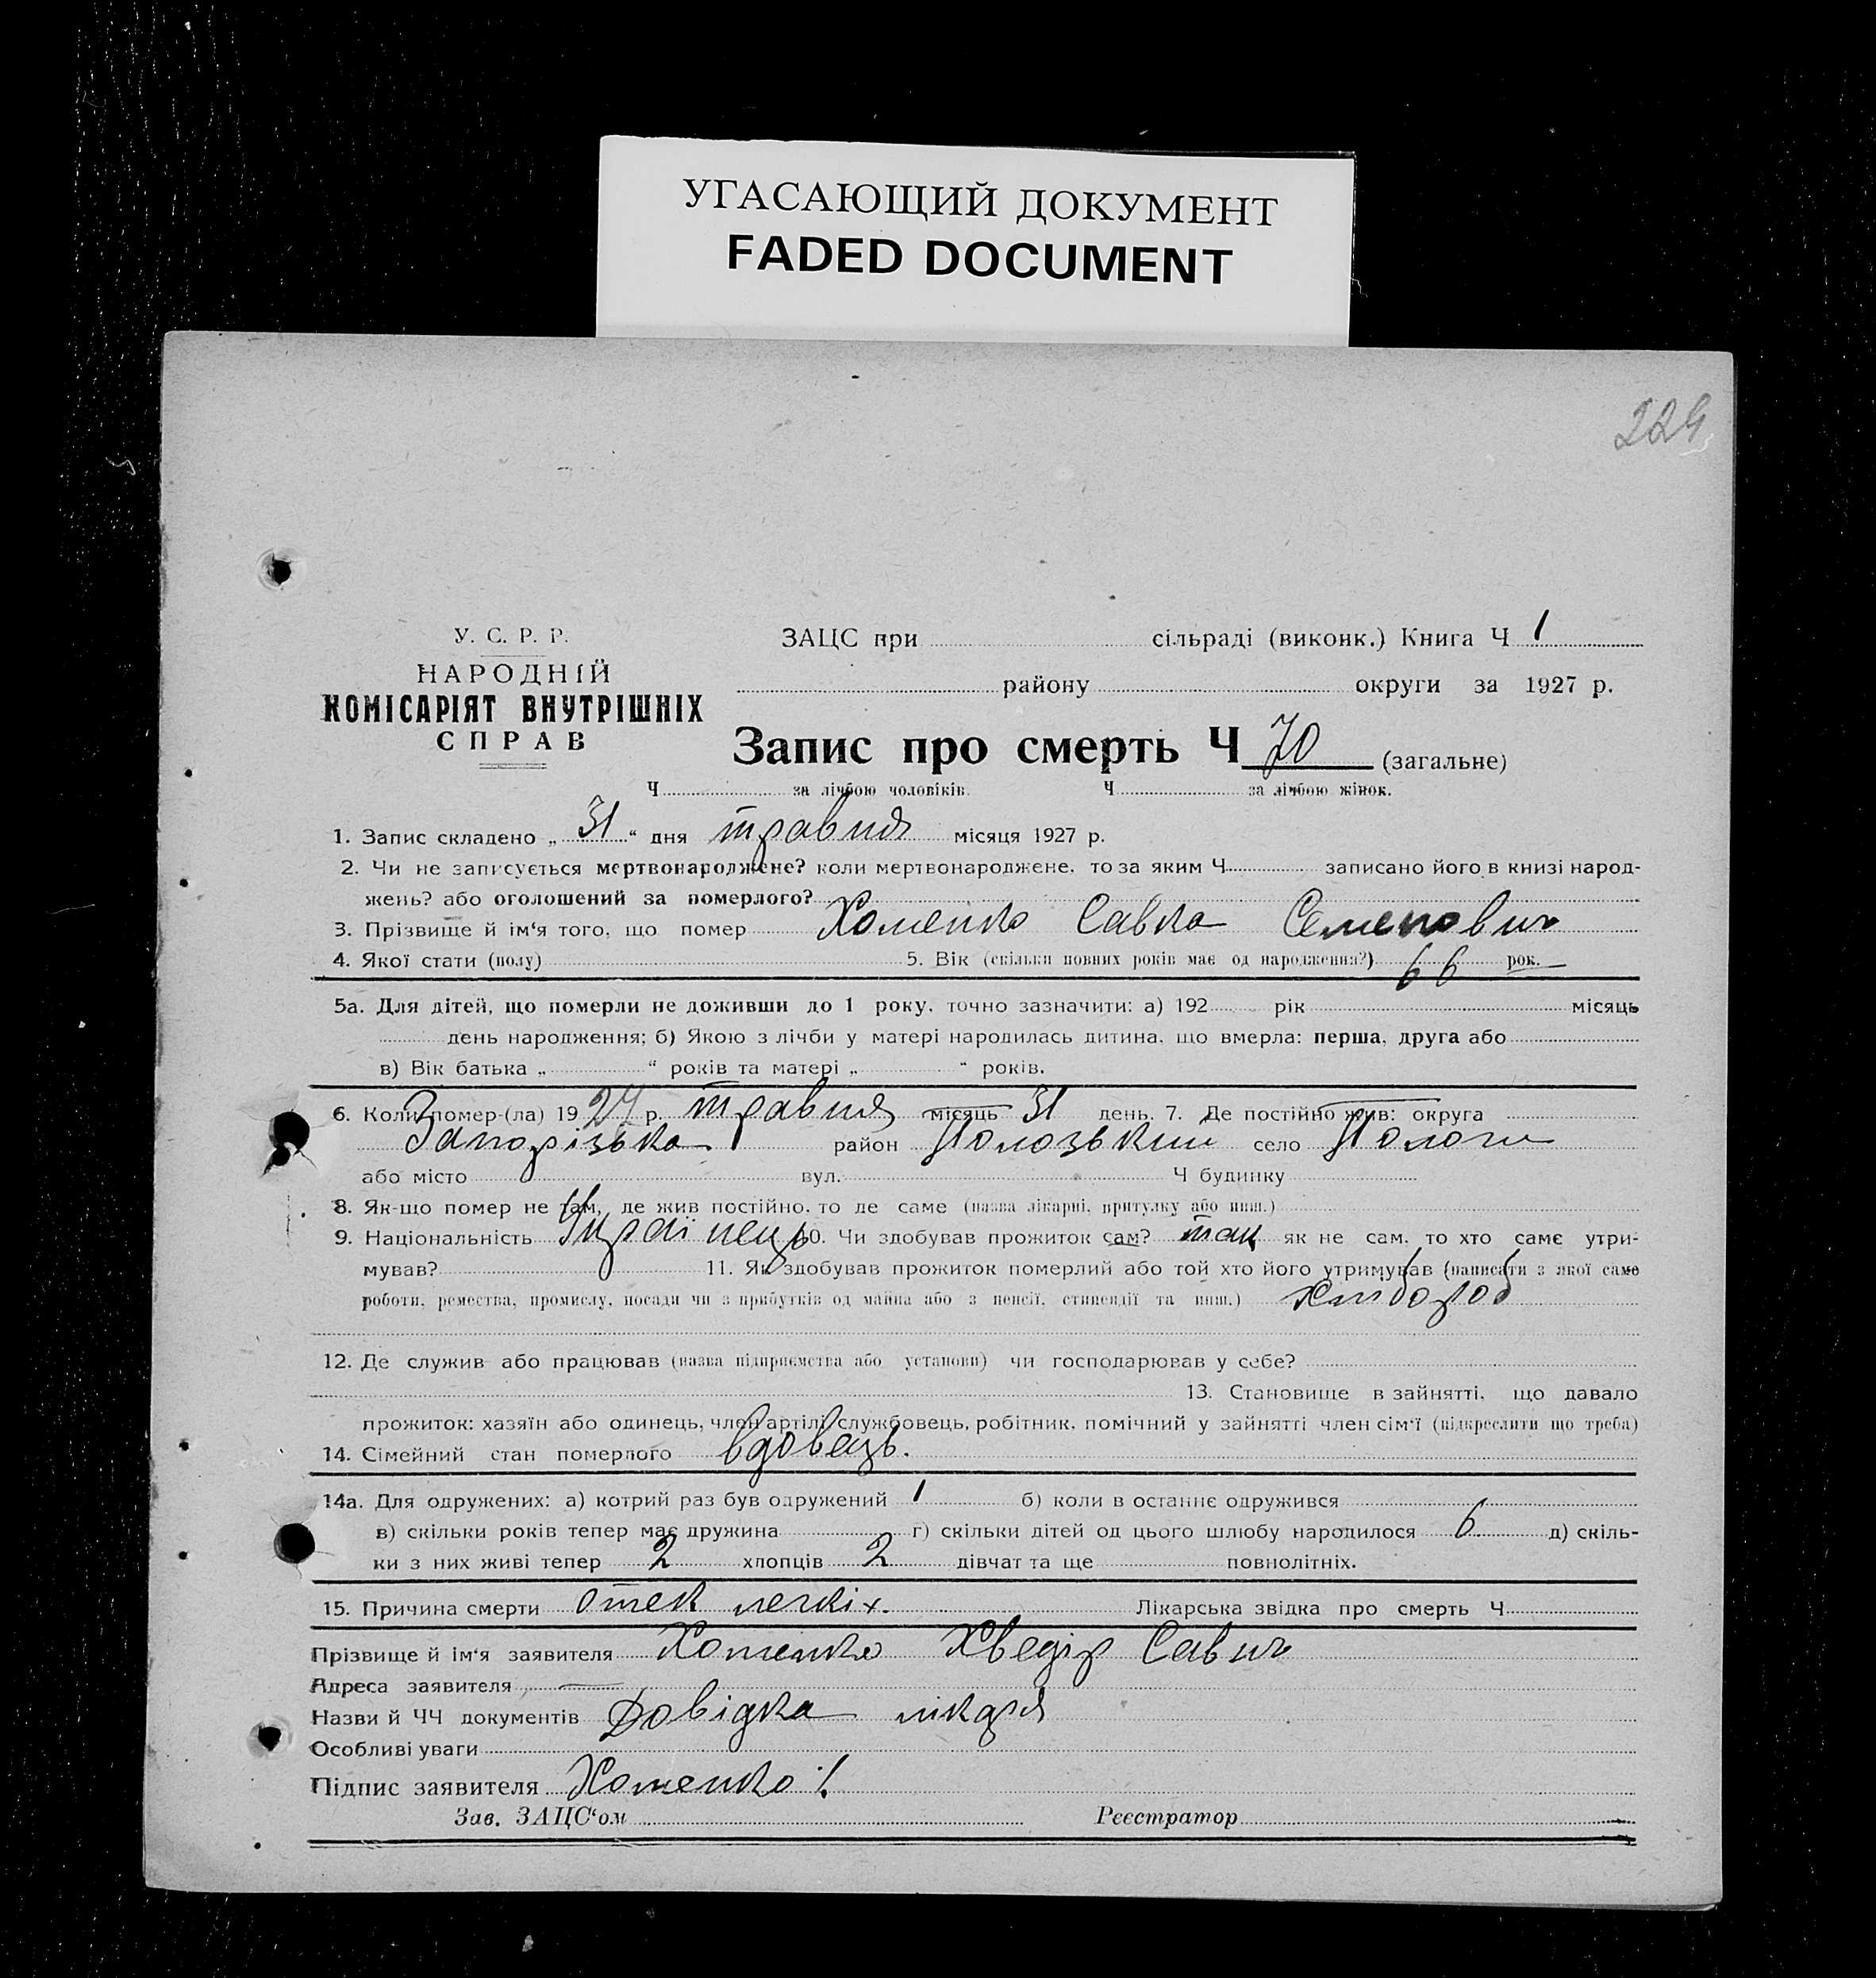 УГАСАЮЩИЙ ДОКУМЕНТ
FADED DOCUMENT
224
У. С. Р. Р.
НАРОДНІЙ
КОМІСАРІЯТ ВНУТРІШНІХ
СПРАВ
ЗАЦС при сільраді (виконк.) Книга Ч 1
району округи за 1927 р.
Запис про смерть Ч 70 (загальне)
Ч за лічбою чоловіків. Ч за лічбою жінок.
1. Запис складено „ 31 “ дня травня місяця 1927 р.
2. Чи не записується мертвонароджене? коли мертвонароджене, то за яким Ч записано його в книзі народ-
жень? або оголошений за померлого?
3. Прізвище й ім'я того, що помер Хоменко Савка Семенович
4. Якої стати (полу) 5. Вік (скільки повних років має од народження?) 66 рок.
5а. Для дітей, що померли не доживши до 1 року, точно зазначити: а) 192 рік місяць
день народження; б) Якою з лічби у матері народилась дитина, що вмерла: перша, друга або
в) Вік батька „ “ років та матері „ “ років.
6. Коли помер-(ла) 1927 р. травня місяць 31 день. 7. Де постійно жив: округа
Запорізька район Пологзький село Пологи
або місто вул. Ч будинку
8. Як-що помер не там, де жив постійно, то де саме (назва лікарні, притулку або инш.)
9. Національність Українець 10. Чи здобував прожиток сам? так як не сам, то хто саме утри-
мував? 11. Як здобував прожиток померлий або той хто його утримував (написати з якої саме
роботи, ремества, промислу, посади чи з прибутків од майна або з пенсії, стипендії та инш.) хлібороб
12. Де служив або працював (назва підприємства або установи) чи господарював у себе?
13. Становище в зайнятті, що давало
прожиток: хазяїн або одинець, член артілі службовець, робітник, помічний у зайнятті член сім'ї (підкреслити що треба)
14. Сімейний стан померлого вдовець.
14а. Для одружених: а) котрий раз був одружений 1 б) коли в останнє одружився
в) скільки років тепер має дружина г) скільки дітей од цього шлюбу народилося 6 д) скіль-
ки з них живі тепер 2 хлопців 2 дівчат та ще повнолітніх.
15. Причина смерти отек легкіх. Лікарська звідка про смерть Ч
Прізвище й ім'я заявителя Хоменко Хведір Савич
Адреса заявителя
Назви й ЧЧ документів Довідка лікаря
Особливі уваги
Підпис заявителя Хоменко
Зав. ЗАЦС'ом Реєстратор